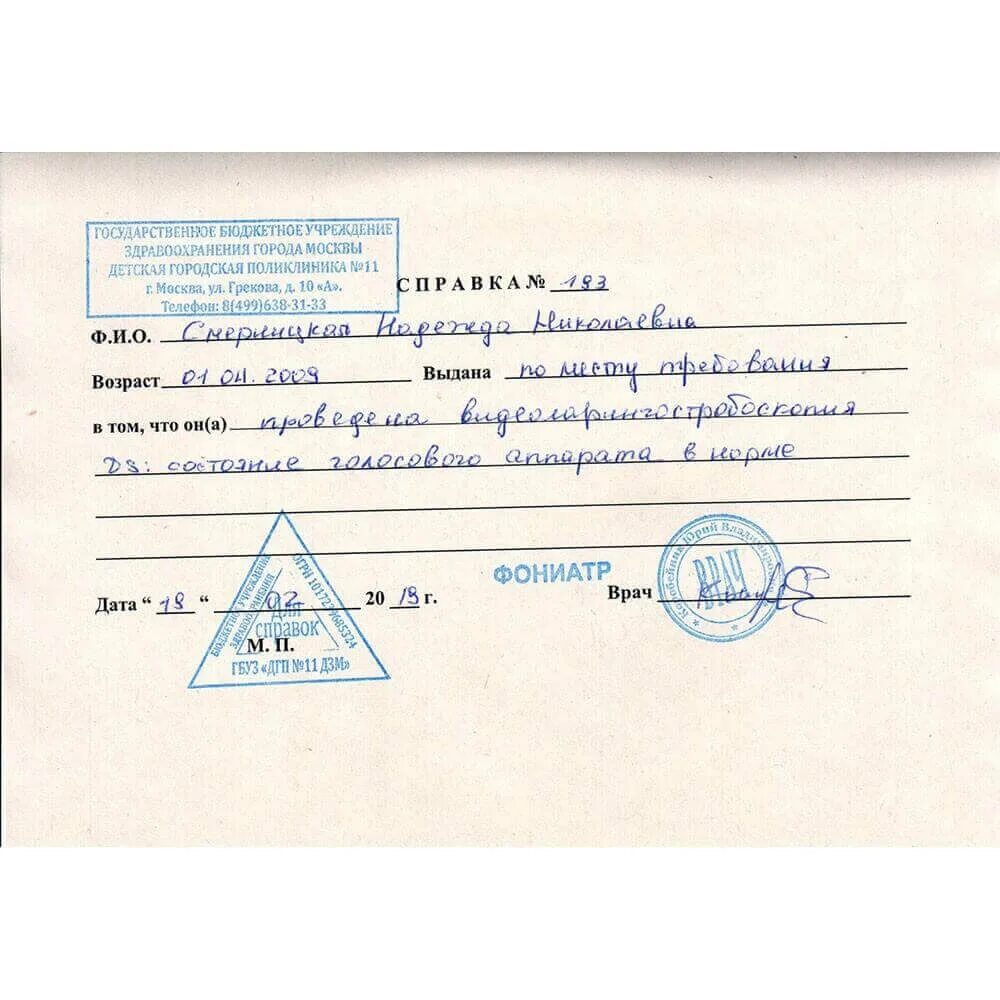 ГОСУДАРСТВЕННОЕ БЮДЖЕТНОЕ УЧРЕЖДЕНИЕ
ЗДРАВООХРАНЕНИЯ ГОРОДА МОСКВЫ
ДЕТСКАЯ ГОРОДСКАЯ ПОЛИКЛИНИКА №11
г. Москва, ул. Грекова, д. 10 «А».
Телефон: 8(499)638-31-33
СПРАВКА № 193
Ф.И.О. Надежда Николаевна
Возраст 01 04. 2009 Выдана по месту требования
в том, что он(а) проведена видеоларингостробоскопия
DS: состояние голосового аппарата в норме
ФОНИАТР
Дата “ 19 “ 02 20 19 г.
Врач
ВРАЧ
Коробейник Юрий Владимирович
БЮДЖЕТНОЕ УЧРЕЖДЕНИЕ
ЗДРАВООХРАНЕНИЯ
ОГРН
Для
справок
М. П.
ГБУЗ «ДГП №11 ДЗМ»